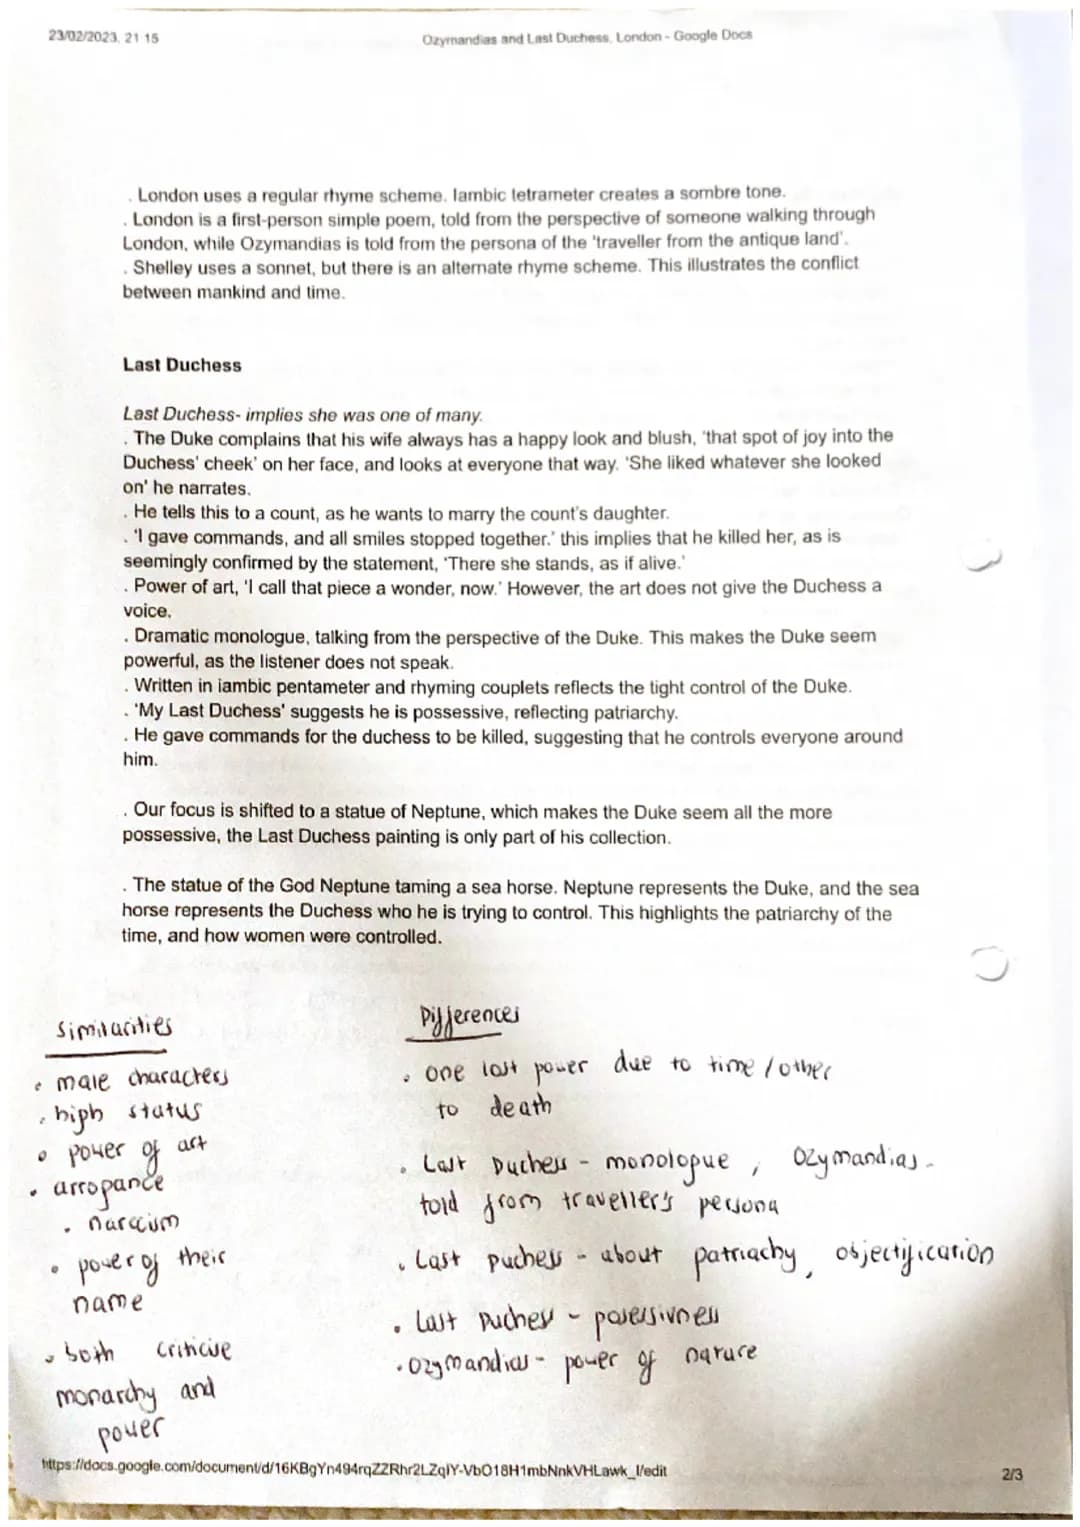 23/02/2023, 21 15
Ozymandias and Last Duchess, London - Google Docs
. London uses a regular rhyme scheme. Iambic tetrameter creates a sombre tone.
. London is a first-person simple poem, told from the perspective of someone walking through
London, while Ozymandias is told from the persona of the 'traveller from the antique land'.
. Shelley uses a sonnet, but there is an alternate rhyme scheme. This illustrates the conflict
between mankind and time.
Last Duchess
Last Duchess- implies she was one of many.
. The Duke complains that his wife always has a happy look and blush, 'that spot of joy into the
Duchess' cheek' on her face, and looks at everyone that way. 'She liked whatever she looked
on' he narrates.
. He tells this to a count, as he wants to marry the count's daughter.
. 'I gave commands, and all smiles stopped together.' this implies that he killed her, as is
seemingly confirmed by the statement, 'There she stands, as if alive.'
. Power of art, 'I call that piece a wonder, now.' However, the art does not give the Duchess a
voice.
. Dramatic monologue, talking from the perspective of the Duke. This makes the Duke seem
powerful, as the listener does not speak.
. Written in iambic pentameter and rhyming couplets reflects the tight control of the Duke.
. 'My Last Duchess' suggests he is possessive, reflecting patriarchy.
. He gave commands for the duchess to be killed, suggesting that he controls everyone around
him.
. Our focus is shifted to a statue of Neptune, which makes the Duke seem all the more
possessive, the Last Duchess painting is only part of his collection.
. The statue of the God Neptune taming a sea horse. Neptune represents the Duke, and the sea
horse represents the Duchess who he is trying to control. This highlights the patriarchy of the
time, and how women were controlled.
Similarities
• male characters
• high status
• power of art
• arrogance
• narcism
• power of their
name
• both criticise
monarchy and
power
Differences
• one lost power due to time / other
to death
• Last Duchess - monologue, Ozymandias -
told from traveller's persona
• Last Duchess - about patriachy, objectification
• Last Duchess - posessivness
• Ozymandias - power of nature
https://docs.google.com/document/d/16KBgYn494rqZ2Rhr2LZqlY-VbO18H1mbNnkVHLawk_I/edit
2/3